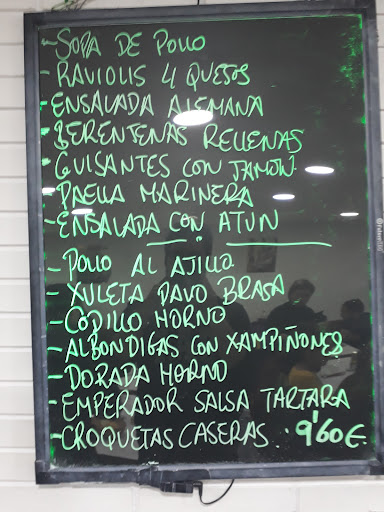 - SOPA DE POLLO
- RAVIOLIS 4 QUESOS
- ENSALADA ALEMANA
- BERENJENAS RELLENAS
- GUISANTES CON JAMÓN
- PAELLA MARINERA
- ENSALADA CON ATUN
- POLLO AL AJILLO
- XULETA PAVO BRASA
- CODILLO HORNO
- ALBONDIGAS CON XAMPIÑONES
- DORADA HORNO
- EMPERADOR SALSA TARTARA
- CROQUETAS CASERAS. 9'60€